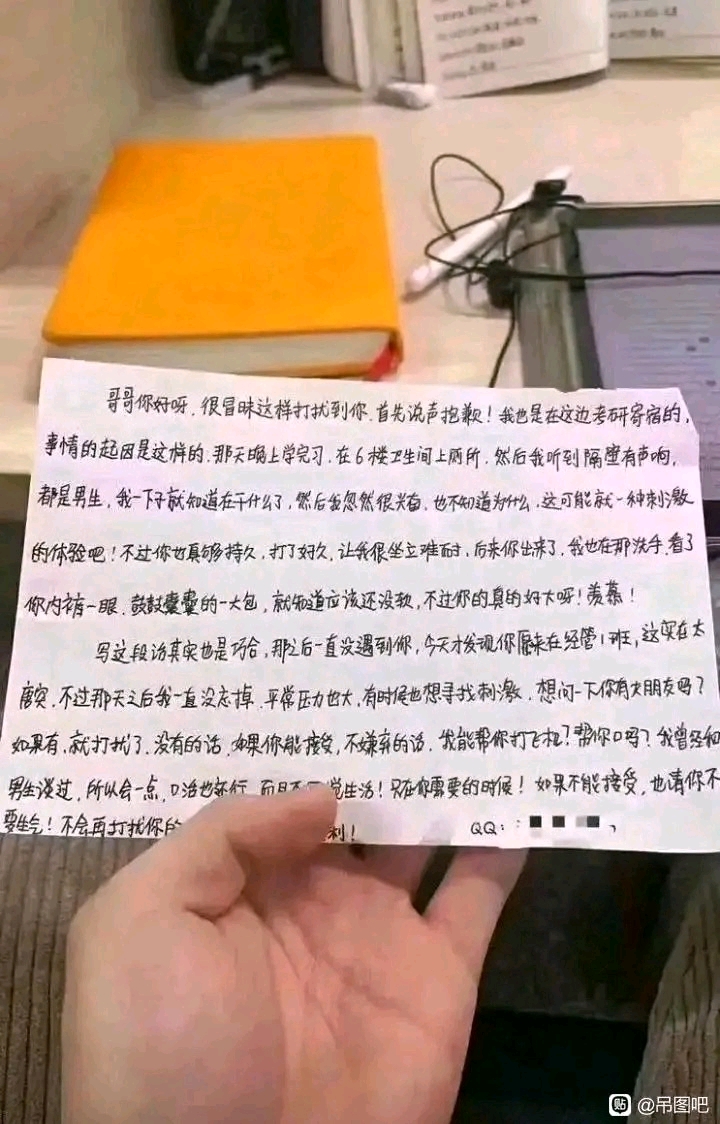 哥哥你好呀，很冒昧这样打扰到你，首先说声抱歉！我也是在这边考研寄宿的，
事情的起因是这样的，那天晚上学完习，在6楼卫生间上厕所，然后我听到隔壁有声响，
都是男生，我一下子就知道在干什么了，然后我忽然很兴奋，也不知道为什么，这可能就一种刺激
的体验吧！不过你也真够持久，打了好久，让我很坐立难耐，后来你出来了，我也在那洗手，看了
你内裤一眼，鼓鼓囊囊的一大包，就知道应该还没软，不过你的真的好大呀！羡慕！
写这段话其实也是巧合，那之后一直没遇到你，今天才发现你原来在经管1班，这实在太
唐突，不过那天之后我一直没忘掉，平常压力也大，有时候也想寻找刺激，想问一下你有女朋友吗？
如果有，就打扰了，没有的话，如果你能接受，不嫌弃的话，我能帮你打飞机？帮你口吗？我曾经和
男生谈过，所以会一点，口活也还行，而且不 生活！只在你需要的时候！如果不能接受，也请你不
要生气！不会再打扰你的 利！ QQ：
贴 @吊图吧